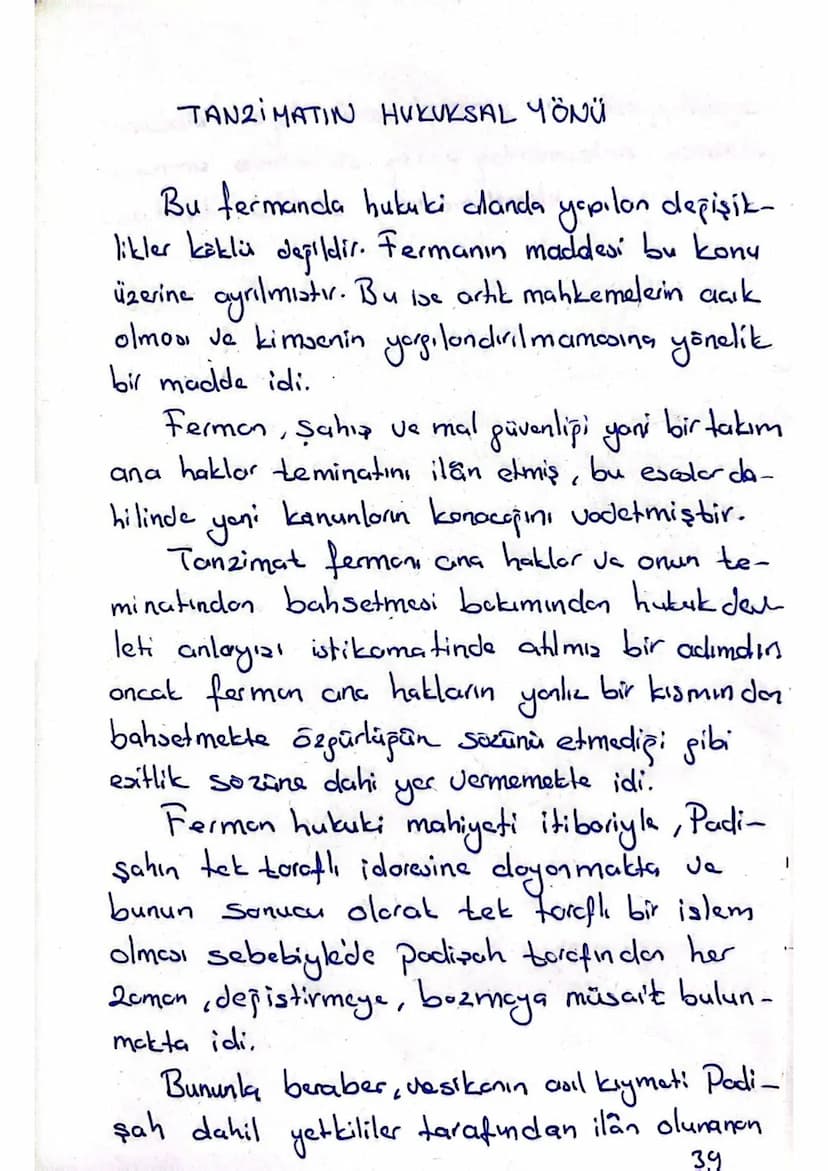 TANZİMATIN HUKUKSAL YÖNÜ
Bu fermanda hukuki alanda yapılan değişik-
likler köklü değildir. Fermanın maddesi bu konu
üzerine ayrılmıştır. Bu ise artık mahkemelerin açık
olması ve kimsenin yargılandırılmamasına yönelik
bir madde idi.
Ferman, şahıs ve mal güvenliği yani bir takım
ana haklar teminatını ilân etmiş, bu esaslar da-
hilinde yeni kanunların konacağını vadetmiştir.
Tanzimat fermanı ana haklar ve onun te-
minatından bahsetmesi bakımından hukuk dev
leti anlayışı istikamatinde atılmış bir adımdın
ancak ferman ana hakların yanlız bir kısmından
bahsetmekte özgürlüğün sözünü etmediği gibi
eşitlik sözüne dahi yer vermemekte idi.
Ferman hukuki mahiyeti itibariyle, Padi-
şahın tek taraflı idaresine dayanmakta ve
bunun sonucu olarak tek taraflı bir işlem
olması sebebiyle'de padişah tarafından her
zaman, değiştirmeye, bozmaya müsait bulun-
makta idi.
Bununla beraber, vesikanın asıl kıymeti Padi-
şah dahil yetkililer tarafından ilân olunanan
39